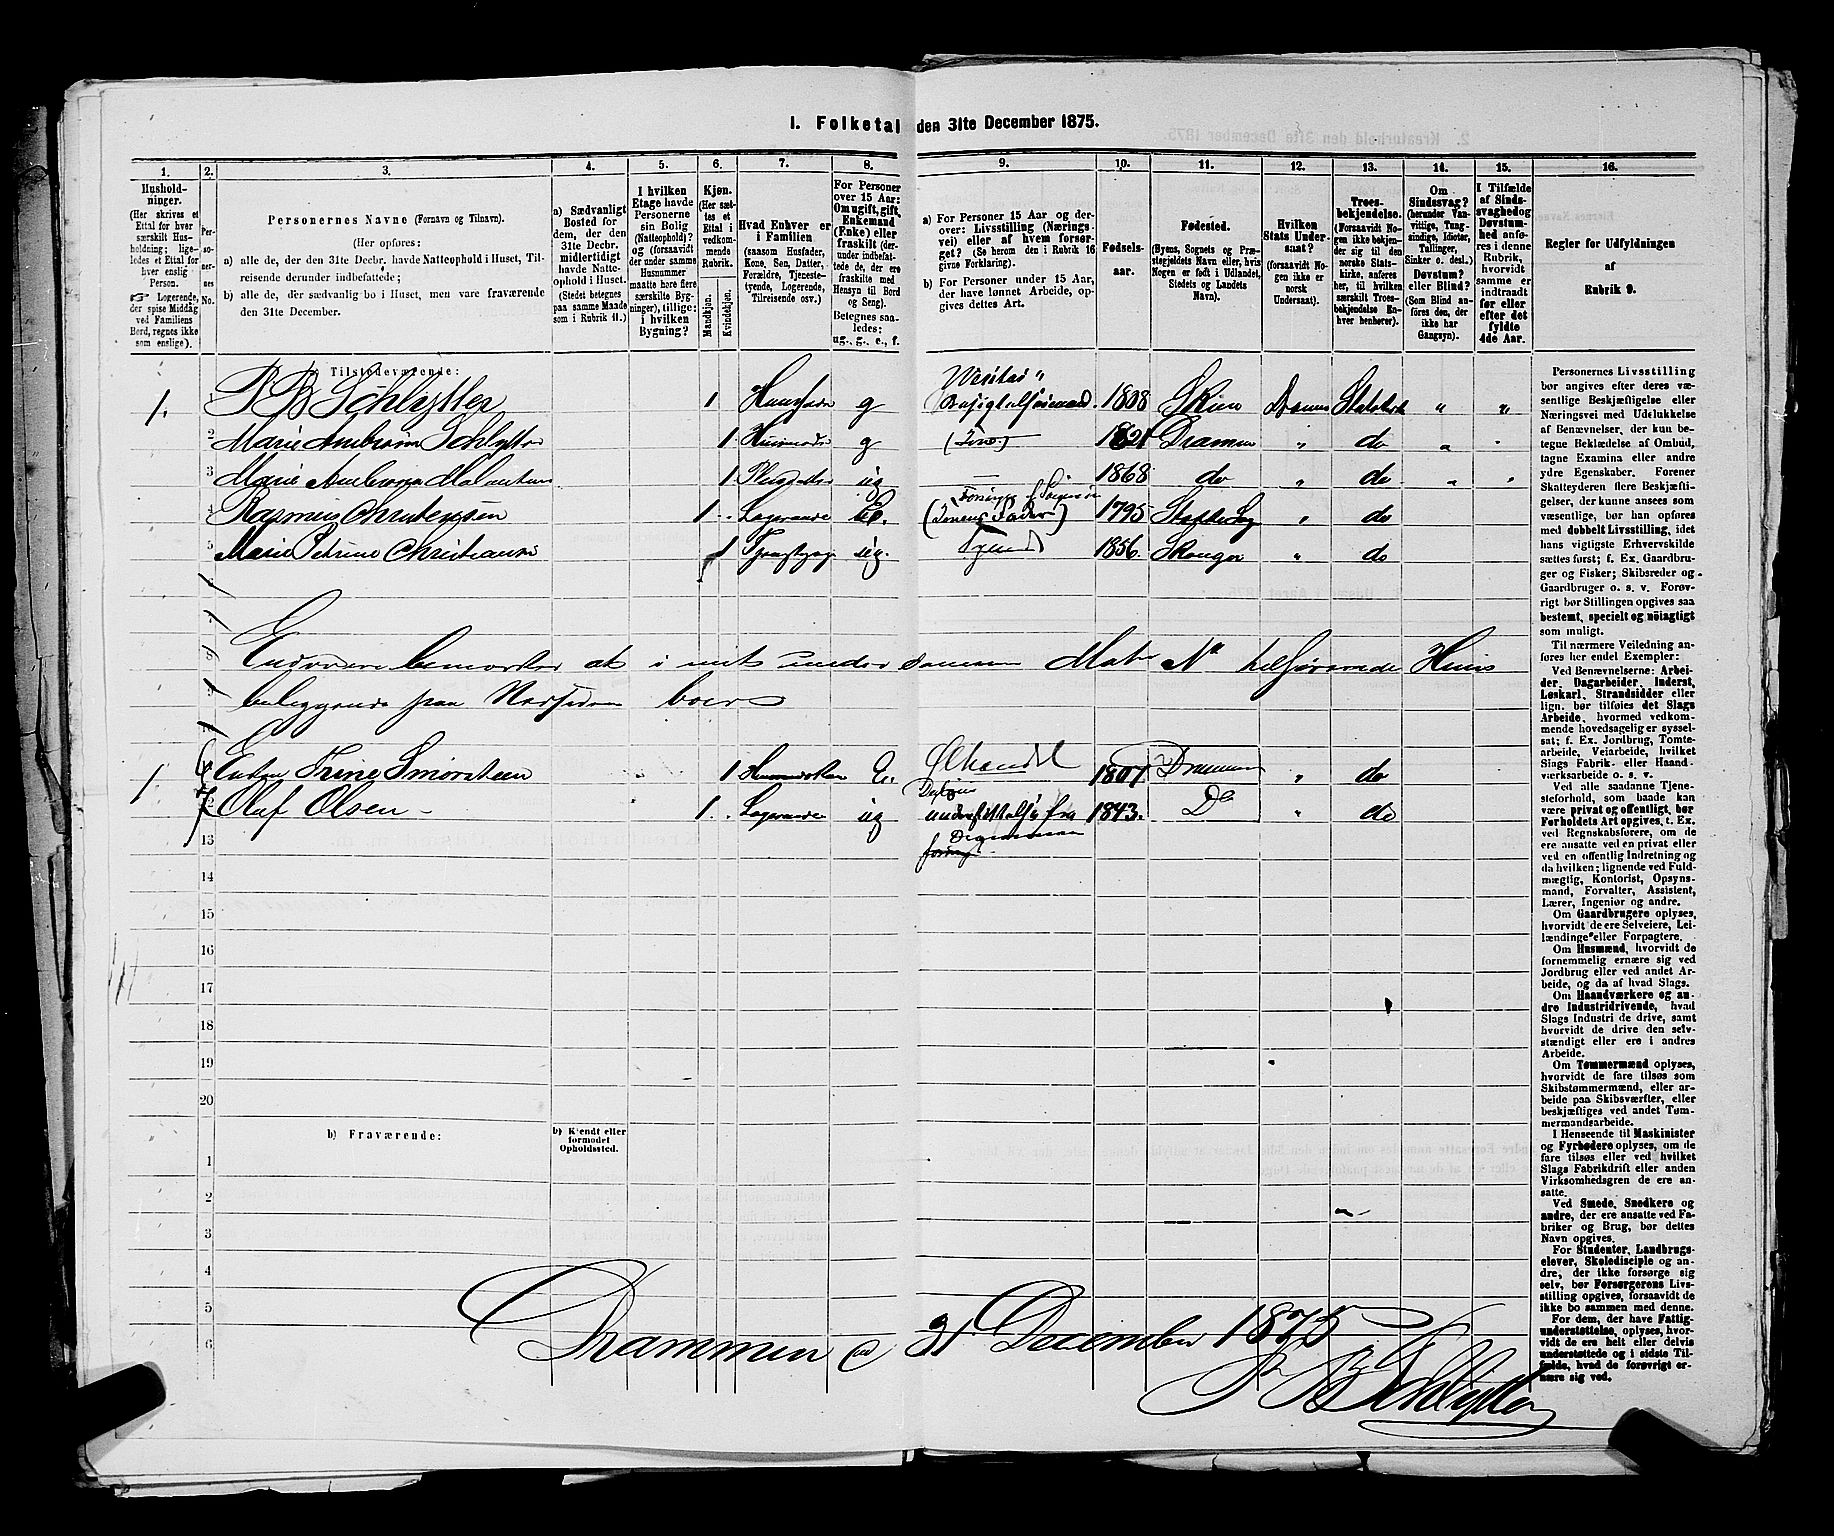 I. Folketal den 31te December 1875.
1. 2. 3. 4. 5. 6. 7. 8. 9. 10. 11. 12. 13. 14. 15. 16.
Husholdninger.
(Her skrives et
Ettal for hver
særskilt Husholdning;
ligeledes et Ettal for
hver enslig
Person.
☞ Logerende,
der spise Middag
ved Familiens
Bord, regnes ikke
som enslige).
Personernes No.
Personernes Navne (Fornavn og Tilnavn).
(Her opføres:
a) alle de, der den 31te Decbr. havde Natteophold i Huset, Tilreisende
derunder indbefattede;
b) alle de, der sædvanlig bo i Huset, men vare fraværende
den 31te December.
a) Sædvanligt
Bosted for
dem, der den
31te Decbr.
midlertidigt
havde Natteophold
i Huset.
(Stedet betegnes
paa samme Maade
som i Rubrik 11.)
I hvilken
Etage havde
Personerne
sin Bolig
(Natteophold)?
(forsaavidt
der under samme
Husnummer
maatte høre flere
særskilte Bygninger),
tillige:
i hvilken
Bygning?
Kjøn.
(Her sættes
et
Ettal i
vedkommende
Rubrik.
Mandkjøn.
Kvindekjøn.
Hvad Enhver er
i Familien
(saasom Husfader,
Kone, Søn, Datter,
Forældre, Tjenestetyende,
Logerende,
Tilreisende osv.)
For Personer
over 15 Aar:
Om ugift, gift,
Enkemand
(Enke) eller
fraskilt (derunder
indbefattede
de, der ere
fraskilte med
Hensyn til Bord
og Seng).
Betegnes saaledes:
ug., g., e., f.
a) For Personer 15 Aar og derover:
Livsstilling (Næringsvei)
eller af hvem forsørget?
(Se herom den i Rubrik 16
givne Forklaring).
b) For Personer under 15 Aar,
der have lønnet Arbeide, opgives
dettes Art.
Fødselsaar.
Fødested.
(Byens, Sognets og Præstegjeldets
Navn eller, hvis
Nogen er født i Udlandet,
Stedets og Landets
Navn).
Hvilken
Stats Undersaat?
(forsaavidt Nogen
ikke er
norsk
Undersaat).
Troesbekjendelse.
(Forsaavidt Nogen
ikke bekjender
sig til den
norske Statskirke,
anføres
her, til hvilken
særskilt Troesbekjendelse
Enhver
henhører).
Om
Sindssvag?
(herunder Vanvittige,
Tungsindige,
Idioter,
Tullinger,
Sinker o. desl.)
Døvstum?
eller Blind?
(Som Blind anføres
den, der
ikke har
Gangsyn).
I Tilfælde
af Sindssvaghed
og
Døvstumhed
anføres
i denne
Rubrik,
hvorvidt
samme er
indtraadt
før eller
efter det
fyldte
4de Aar.
Regler for Udfyldningen
af
Rubrik 9.
a) Tilstedeværende:
1. B. Schlytter 1 Huusfader g 1808 Skien Statskirk " "
2 Marie Schlytter 1 g 1821 Drammen " do " "
3 Marie 1 ug 1868 do " do " "
4 Rasmus Christensen 1 Logerende 1795 " do
5 Marie Petrine Christians 1 ug. 1856. Skouger " do
6
7
8 at i mit under samme Mat No tilhørende Huus
9 beliggende paa boer
10
1 Enken Trine Smørsteen 1 E. Ølhandel 1807 Drammen " do
Olaf Olsen 1 Logerende ug 1843. Do " do
13
14
15
16
17
18
19
20
b) Fraværende:
b) Kjendt eller
formodet
Opholdssted.
1
2
3
4
5
6
Drammen 31 December 1875
B Schlytter
Personernes Livsstilling
bør angives efter deres væsentlige
Beskjæftigelse eller
Næringsvei med Udelukkelse
af Benævnelser, der kun betegne
Beklædelse af Ombud,
tagne Examina eller andre
ydre Egenskaber. Forener
Skatteyderen flere Beskjæftigelser,
der kunne ansees som
væsentlige, bør han opføres
med dobbelt Livsstilling, idet
hans vigtigste Erhvervskilde
sættes først; f. Ex. Gaardbruger
og Fisker; Skibsreder og
Gaardbruger o. s. v. Forøvrigt
bør Stillingen opgives saa
bestemt, specielt og nøiagtigt
som muligt.
Til nærmere Veiledning anføres
her endel Exempler:
Ved Benævnelserne: Arbeider,
Dagarbeider, Inderst,
Løskarl, Strandsidder eller
lign. bør tilføies det Slags
Arbeide, hvormed vedkommende
hovedsagelig er sysselsat;
f. Ex. Jordbrug, Tomtearbeide,
Veiarbeide, hvilket
Slags Fabrik- eller Haandværksarbeide
o. s. v.
Ved alle saadanne Tjenesteforhold,
som baade kan
være privat og offentligt, bør
Forholdets Art opgives, t. Ex.
ved Regnskabsførere, om de
ere ansatte ved en privat eller
ved en offentlig Indretning og
da hvilken; lignende ved Fuldmægtig,
Kontorist, Opsynsmand,
Forvalter, Assistent,
Lærer, Ingeniør og andre.
Om Gaardbrugere oplyses,
hvorvidt de ere Selveiere, Leilændinge
eller Forpagtere.
Om Husmænd, hvorvidt de
fornemmelig ernære sig ved
Jordbrug eller ved andet Arbeide,
og da af hvad Slags.
Om Haandværkere og andre
Industridrivende, hvad
Slags Industri de drive, samt
hvorvidt de drive den selvstændigt
eller ere i andres
Arbeide.
Om Tømmermænd oplyses,
hvorvidt de fare tilsøs som
Skibstømmermænd, eller arbeide
paa Skibsværfter, eller
beskjæftiges ved andet Tømmermandsarbeide.
I Henseende til Maskinister
og Fyrbødere oplyses, om de
fare tilsøs eller ved hvilket
Slags Fabrikdrift eller anden
Virksomhedsgren de ere ansatte.
Ved Smede, Snedkere og
andre, der ere ansatte ved Fabriker
og Brug, bør dettes
Navn opgives.
For Studenter, Landbrugselever,
Skoledisciple og andre,
der ikke forsørge sig
selv, bør Forsørgerens Livsstilling
opgives, forsaavidt de
ikke bo sammen med denne.
For dem, der have Fattigunderstøttelse,
oplyses, hvorvidt
de ere helt eller delvis
understøttede og i sidste Tilfælde,
hvad de forøvrigt ernære
sig ved.